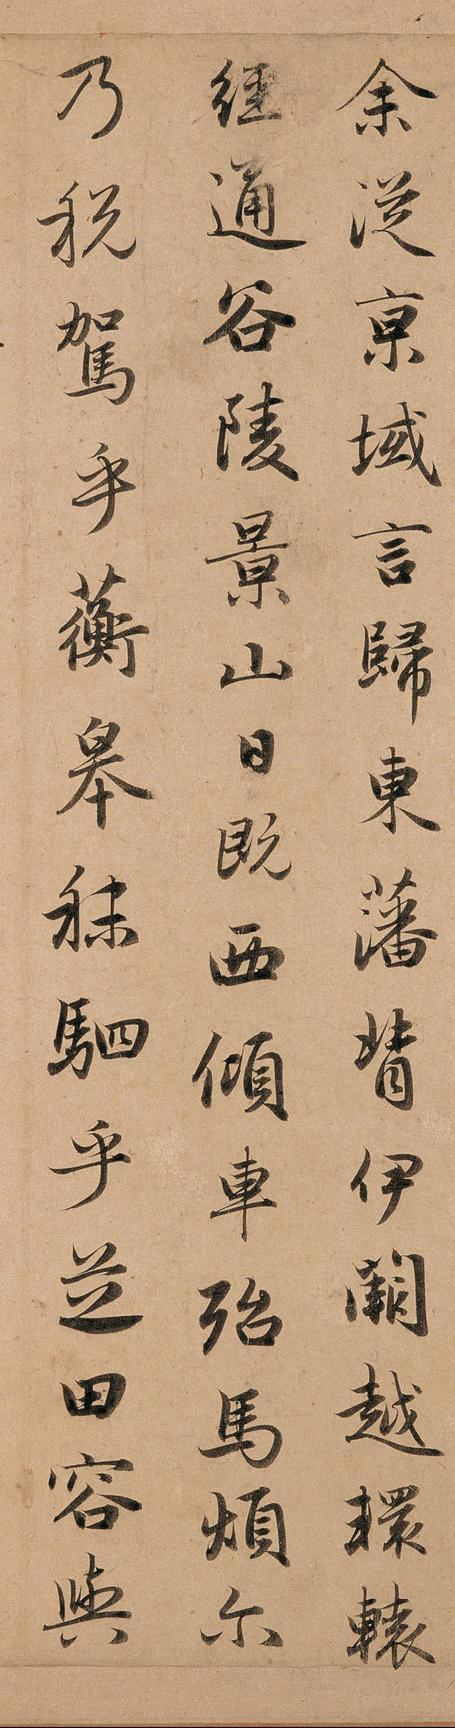 余従京域言歸東藩背伊闕越轘轅
經通谷陵景山日既西傾車殆馬煩尓
乃税駕乎蘅皋秣駟乎芝田容與